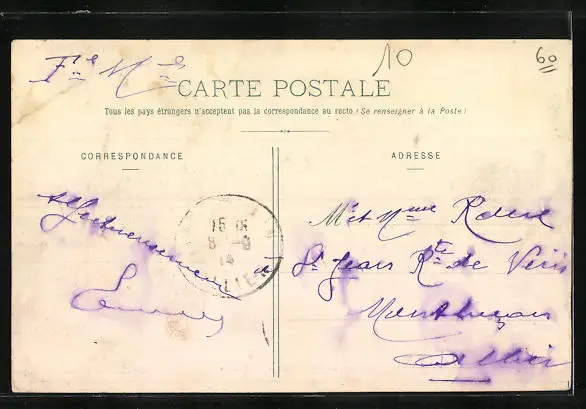 F^se M^re
10
60
CARTE POSTALE
Tous les pays étrangers n'acceptent pas la correspondance au recto (Se renseigner à la Poste)
CORRESPONDANCE
ADRESSE
Affectueusement à
15
8 -9
14
M et Mme
St Jean Rte de
Montluçon
Allier